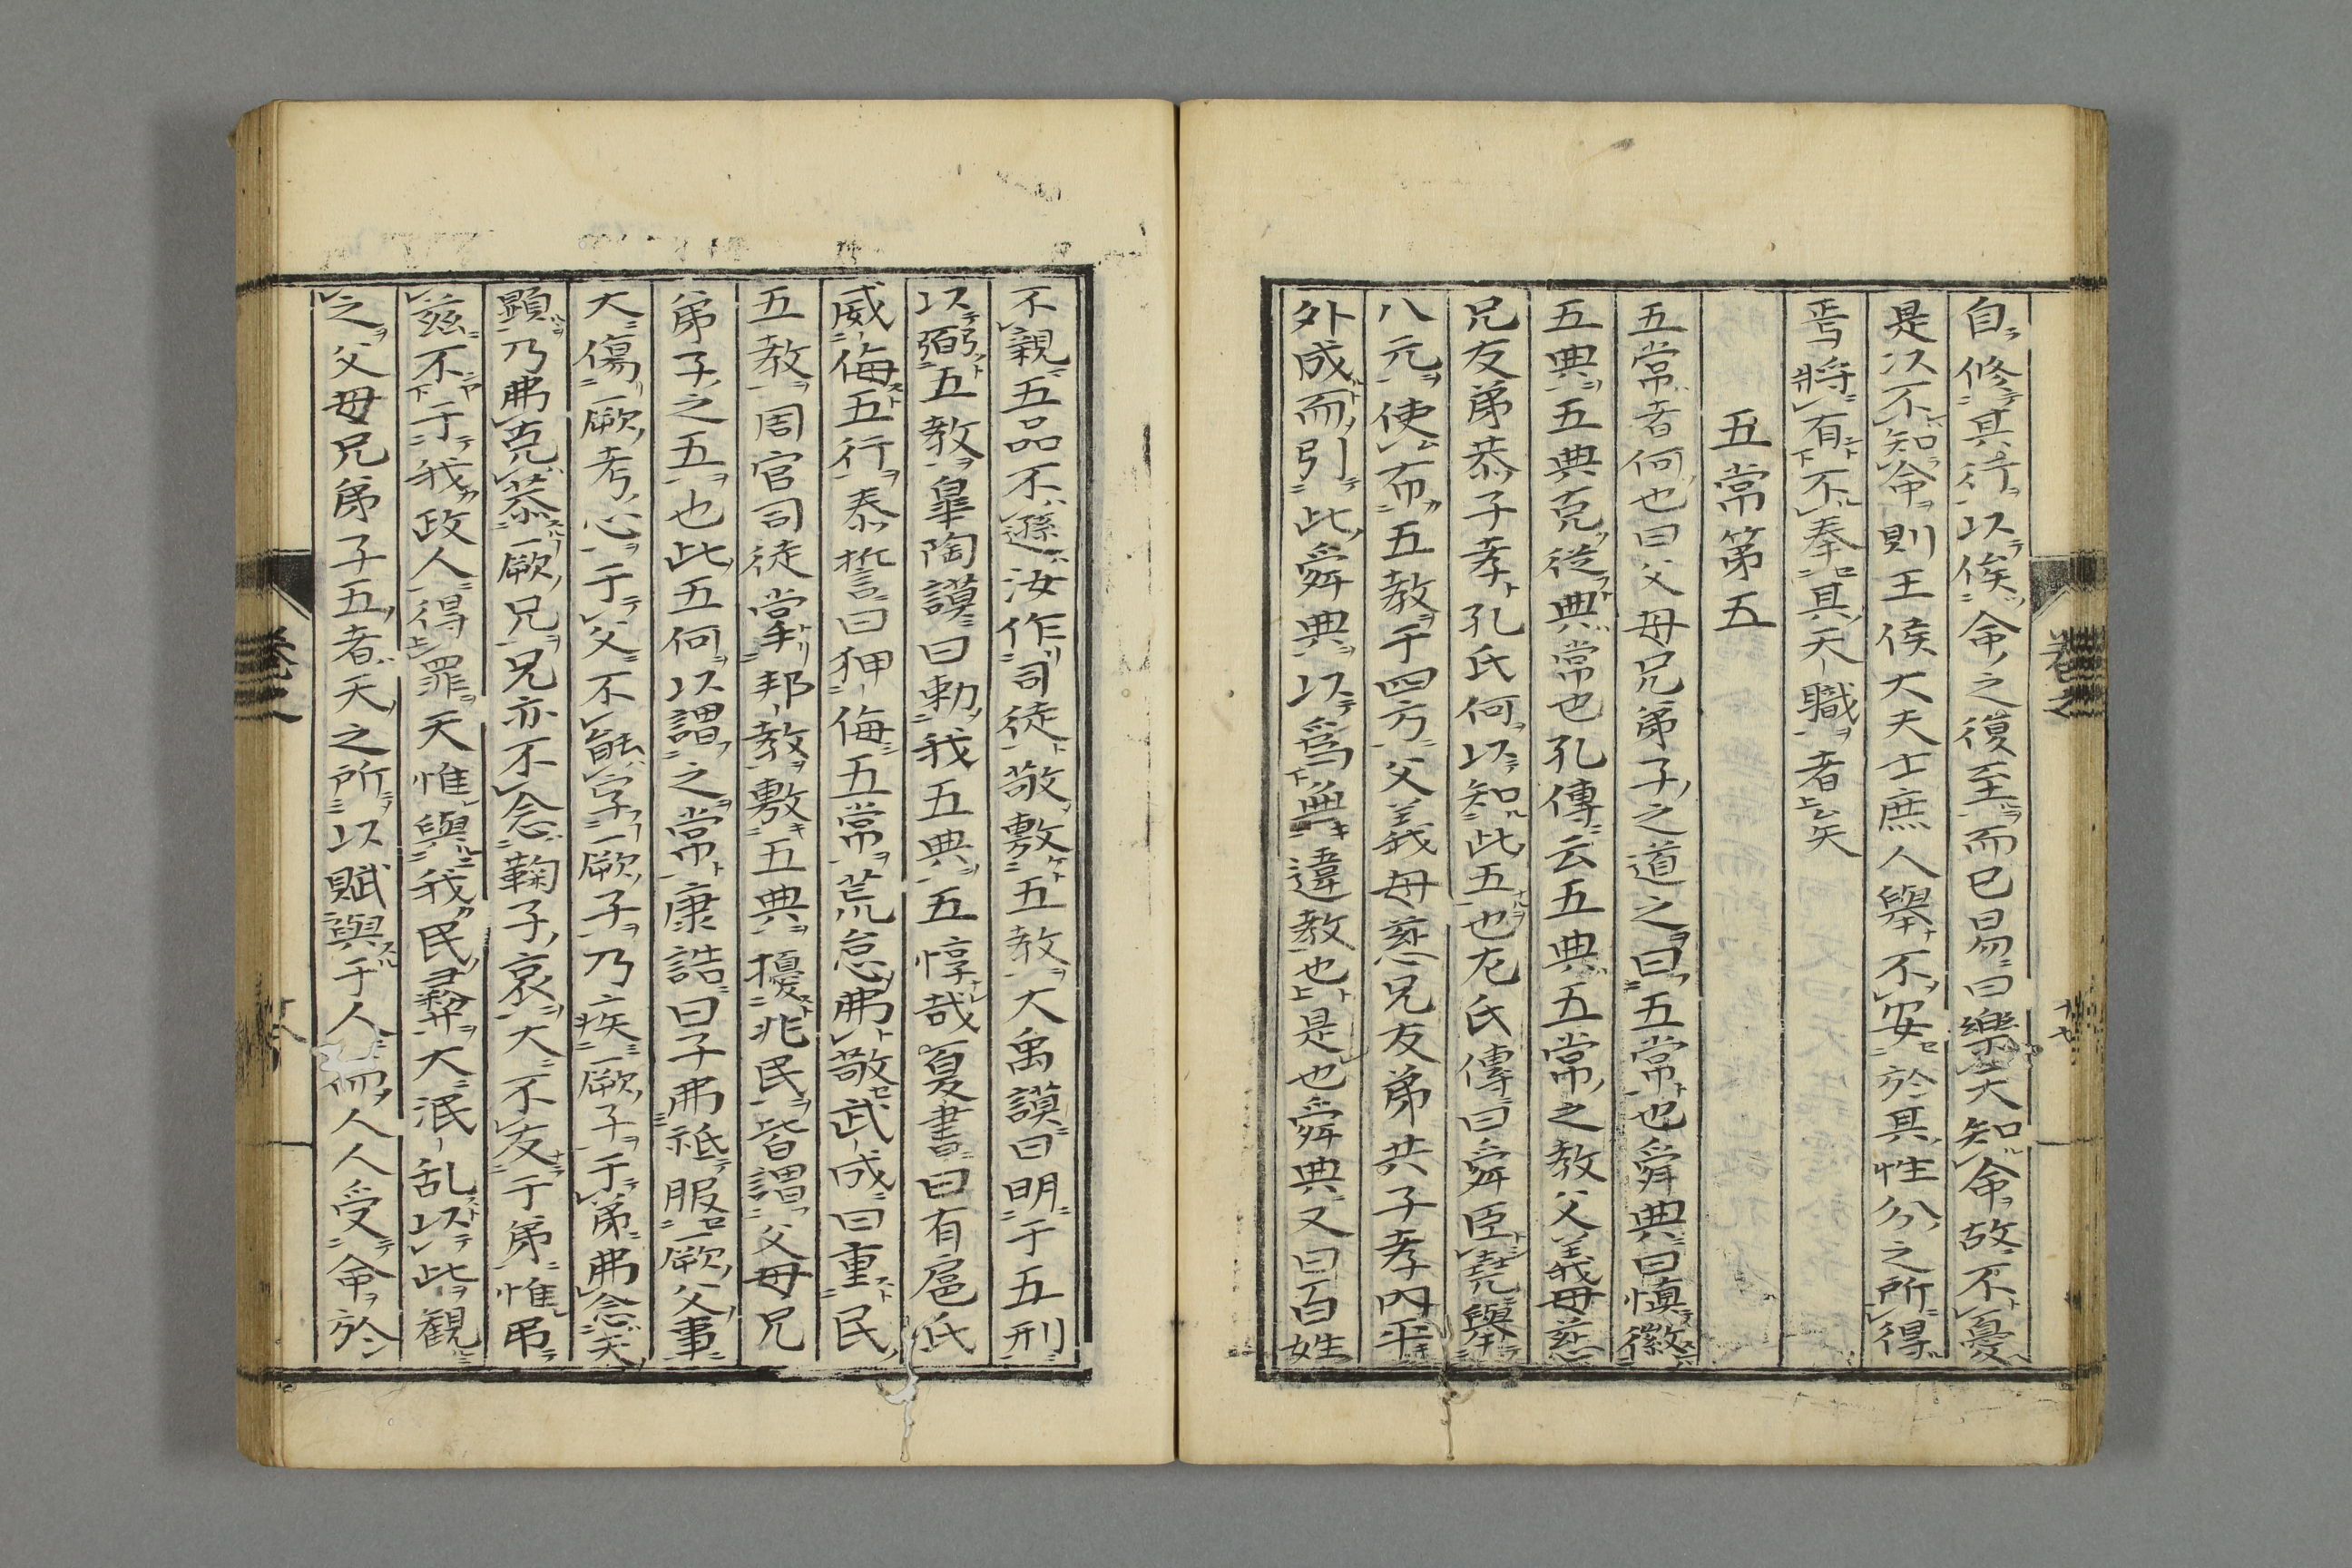 自修其行以俟命之復至而已易曰樂天知命故不憂
是以不知命則王侯大夫士庶人舉不安於其性分之所得
焉將有不奉其天職者矣
五常第五
五常者何也曰父母兄弟子之道之曰五常也舜典曰愼徽
五典五典克從典常也孔傳云五典五常之教父義母慈
兄友弟恭子孝孔氏何以知此五也左氏傳曰舜臣堯舉
八元使布五教于四方父義母慈兄友弟共子孝内平
外成而引此舜典以爲無違教也是也舜典又曰百姓
不親五品不遜汝作司徒敬敷五教大禹謨曰明于五刑
以弼五教皐陶謨曰勅我五典五惇哉夏書曰有扈氏
威侮五行泰誓曰狎侮五常荒怠弗敬武成曰重民
五教周官司徒掌邦教敷五典擾兆民皆謂父母兄
弟子之五也此五何以謂之常康誥曰子弗祗服厥父事
大傷厥考心于父不能字厥子乃疾厥子于弟弗念天
顕乃弗克恭厥兄兄亦不念鞠子哀大不友于弟惟弔
茲不于我政人得罪天惟與我民彛大泯乱以此観
之父母兄弟子五者天之所以賦與于人而人人受命於